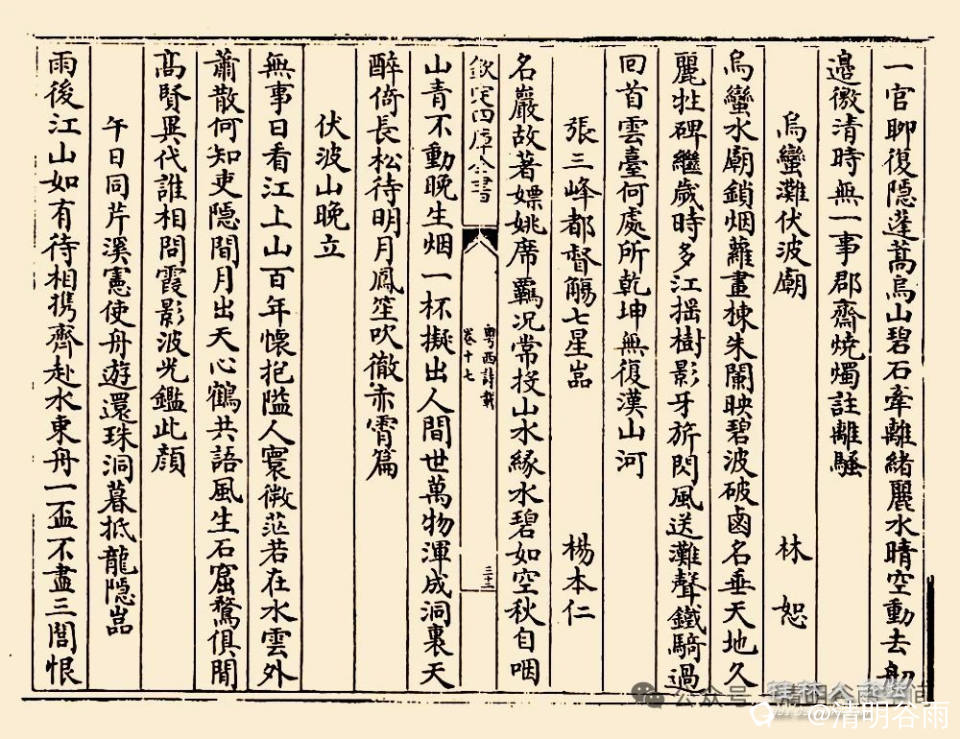 一官聊復隱蓬蒿烏山碧石牽離緒麗水晴空動去舠
邉徼清時無一事郡齋燒燭註離騷
烏蠻灘伏波廟　林恕
烏蠻水廟鎖烟蘿畫棟朱闌映碧波破鹵名垂天地久
麗牲碑繼歲時多江揺樹影牙旂閃風送灘聲鐵騎過
回首雲臺何處所乾坤無復漢山河
張三峰都督觴七星嵓　楊本仁
名巖故著嫖姚席羈况常投山水緣水碧如空秋自咽
欽定四庫全書
粤西詩載
卷十七
三十二
山青不動晚生烟一杯擬出人間世萬物渾成洞裏天
醉倚長松待明月鳳笙吹徹赤霄篇
伏波山晚立
無事日看江上山百年懐抱隘人寰微茫若在水雲外
蕭散何知吏隱間月出天心鶴共語風生石窟鶩俱閒
髙賢異代誰相問霞影波光鑑此顔
午日同芹溪憲使舟遊還珠洞暮抵龍隱嵓
雨後江山如有待相携齊赴水東舟一盃不盡三閭恨
公众号
@清明谷雨